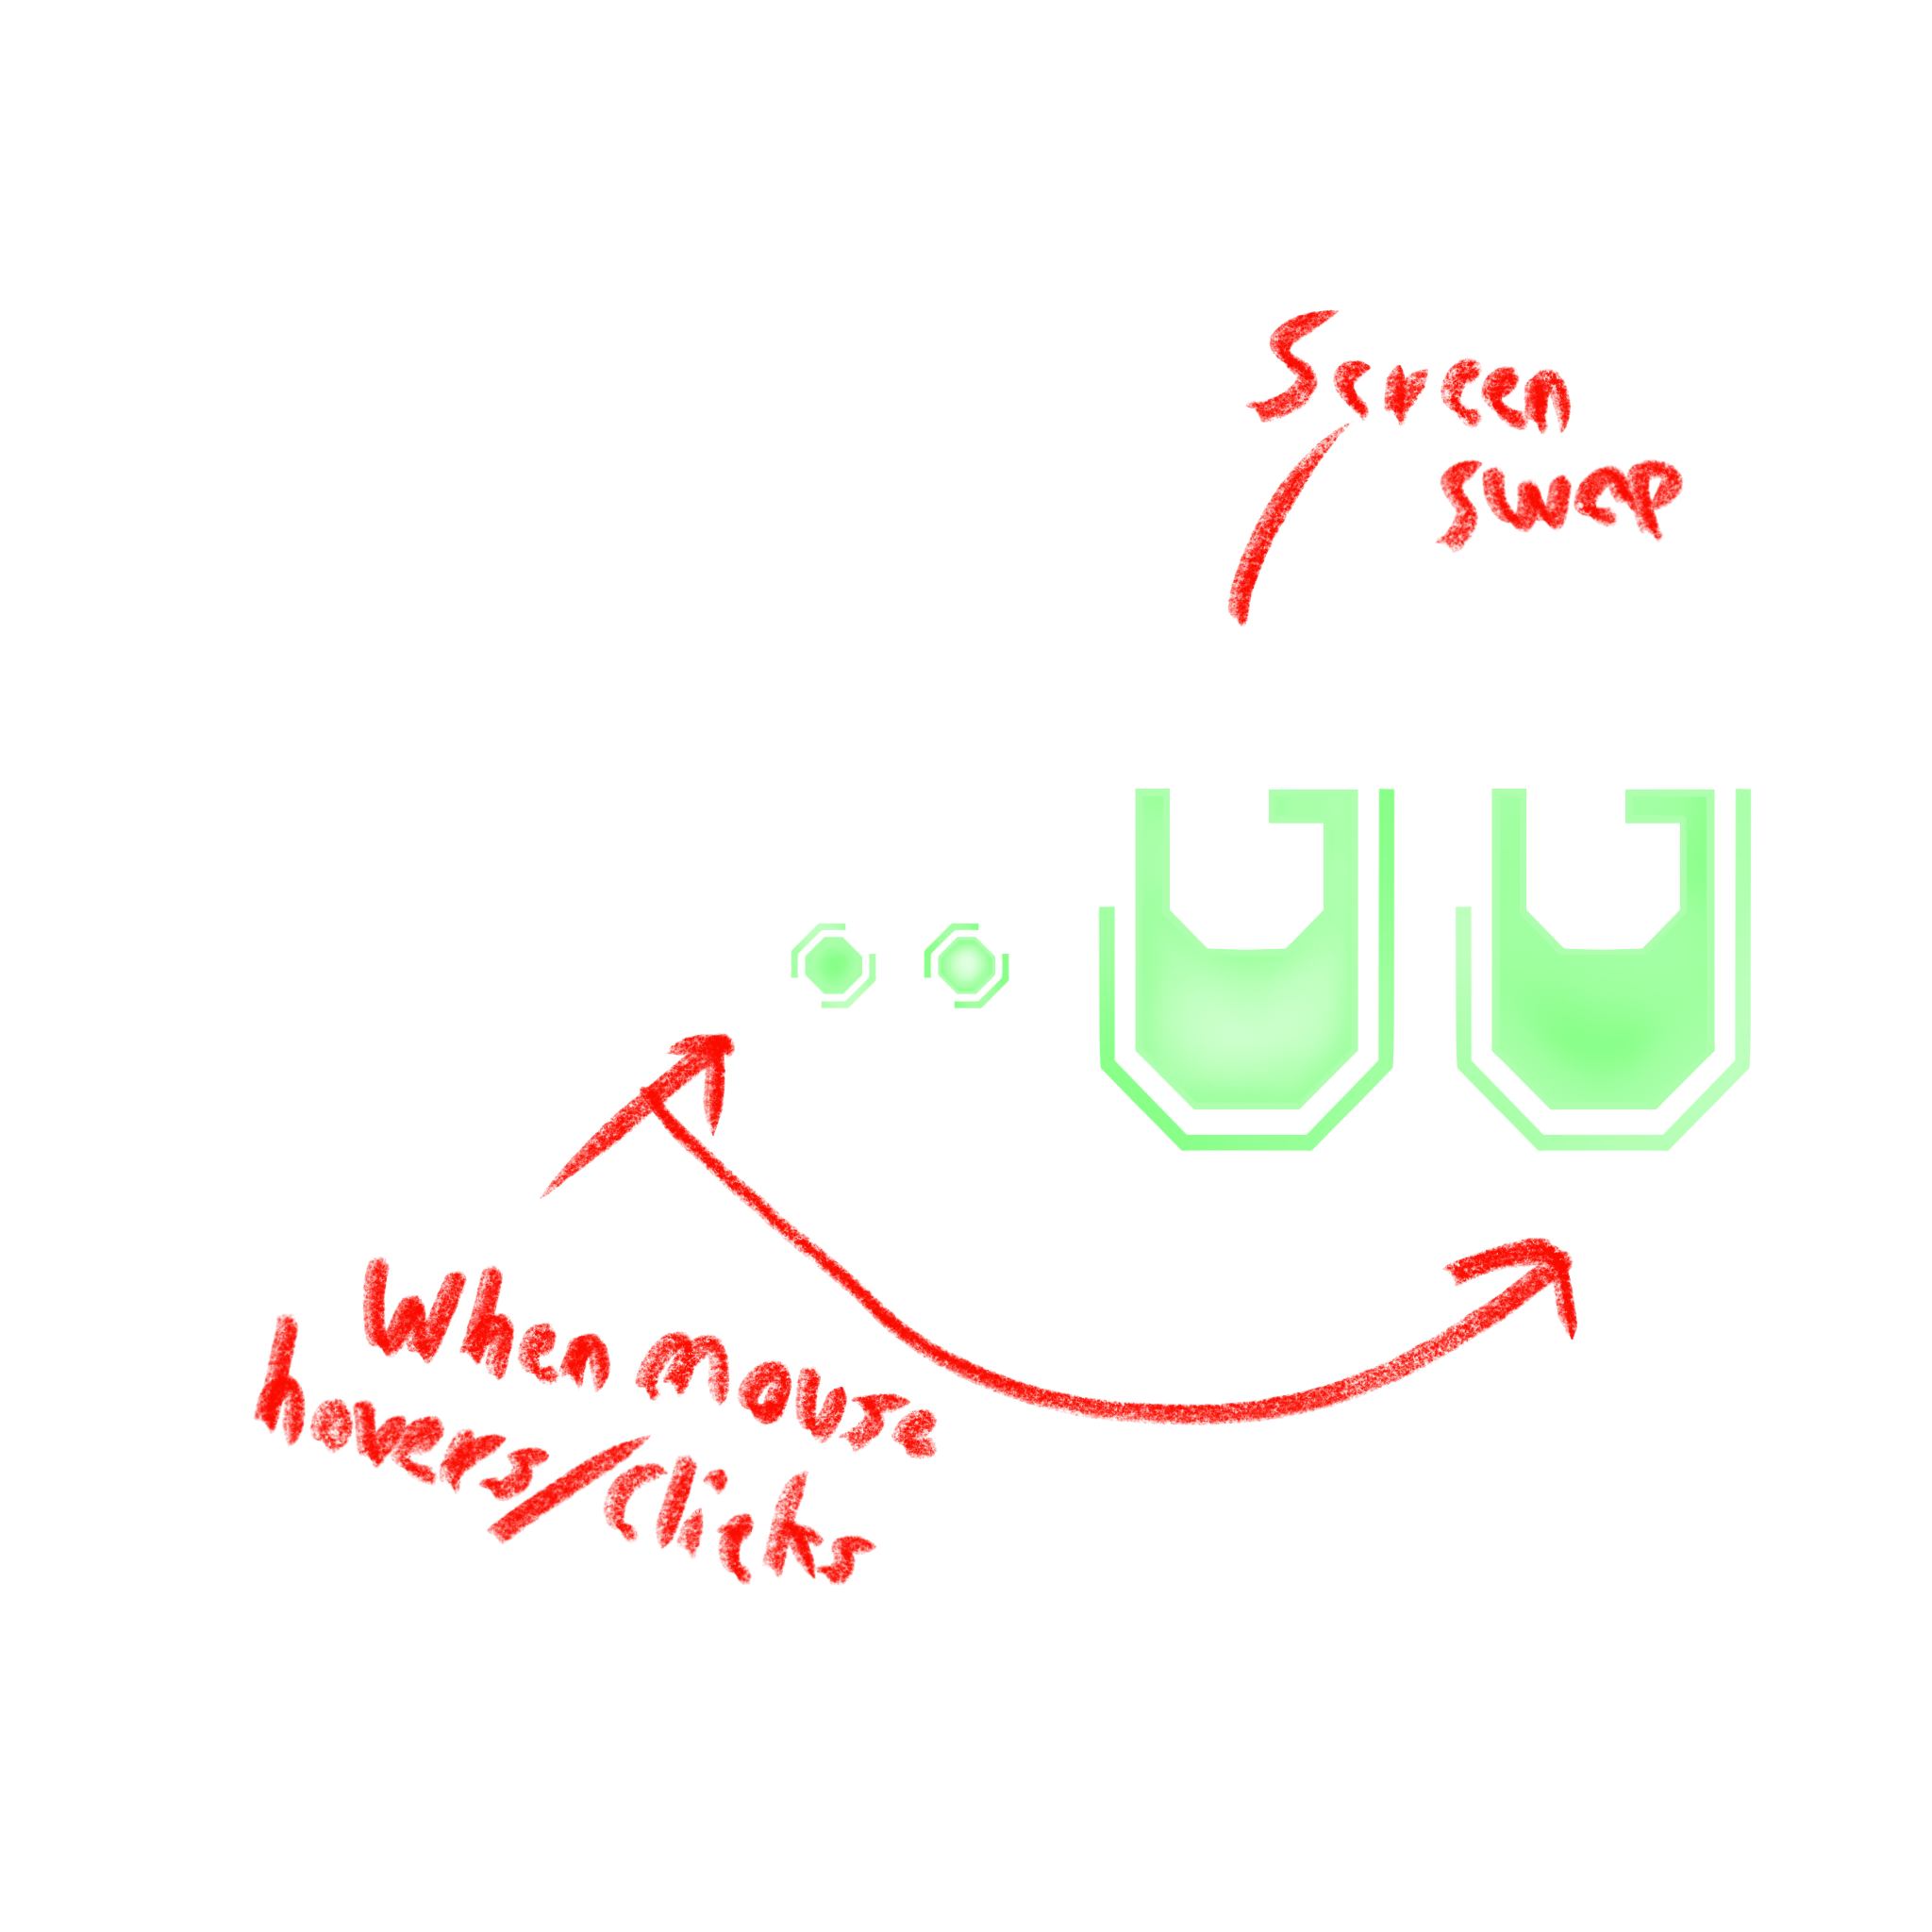 Screen
swap
When mouse
hovers/clicks